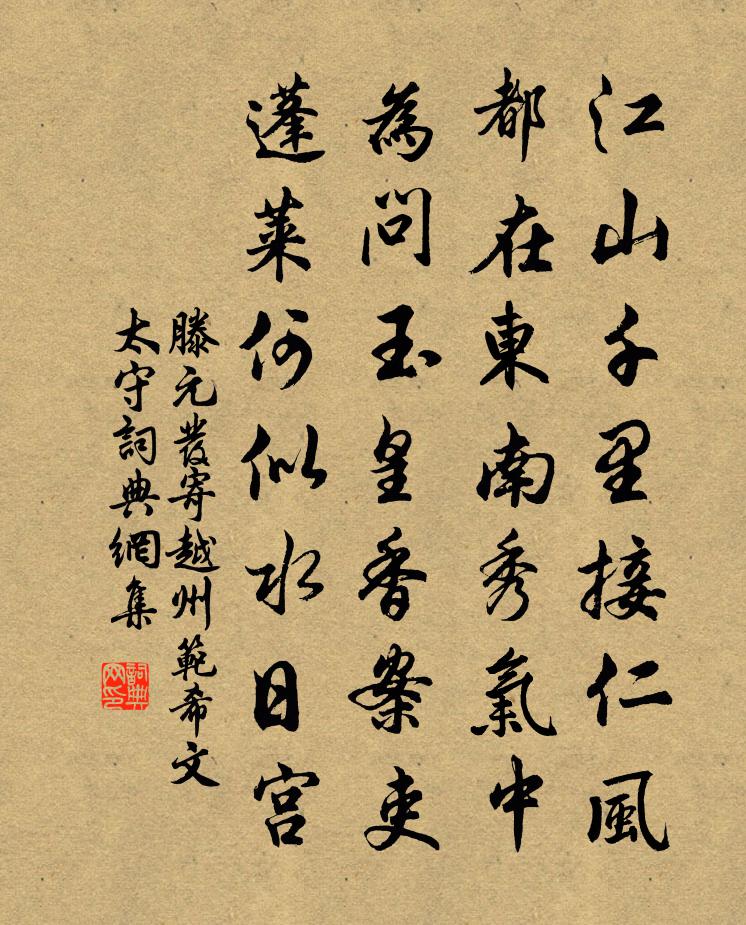 江山千里接仁風
都在東南秀氣中
為問玉皇香案吏
蓬萊何似水日宮
滕元發寄越州範希文
太守詞典網集
詞典网印